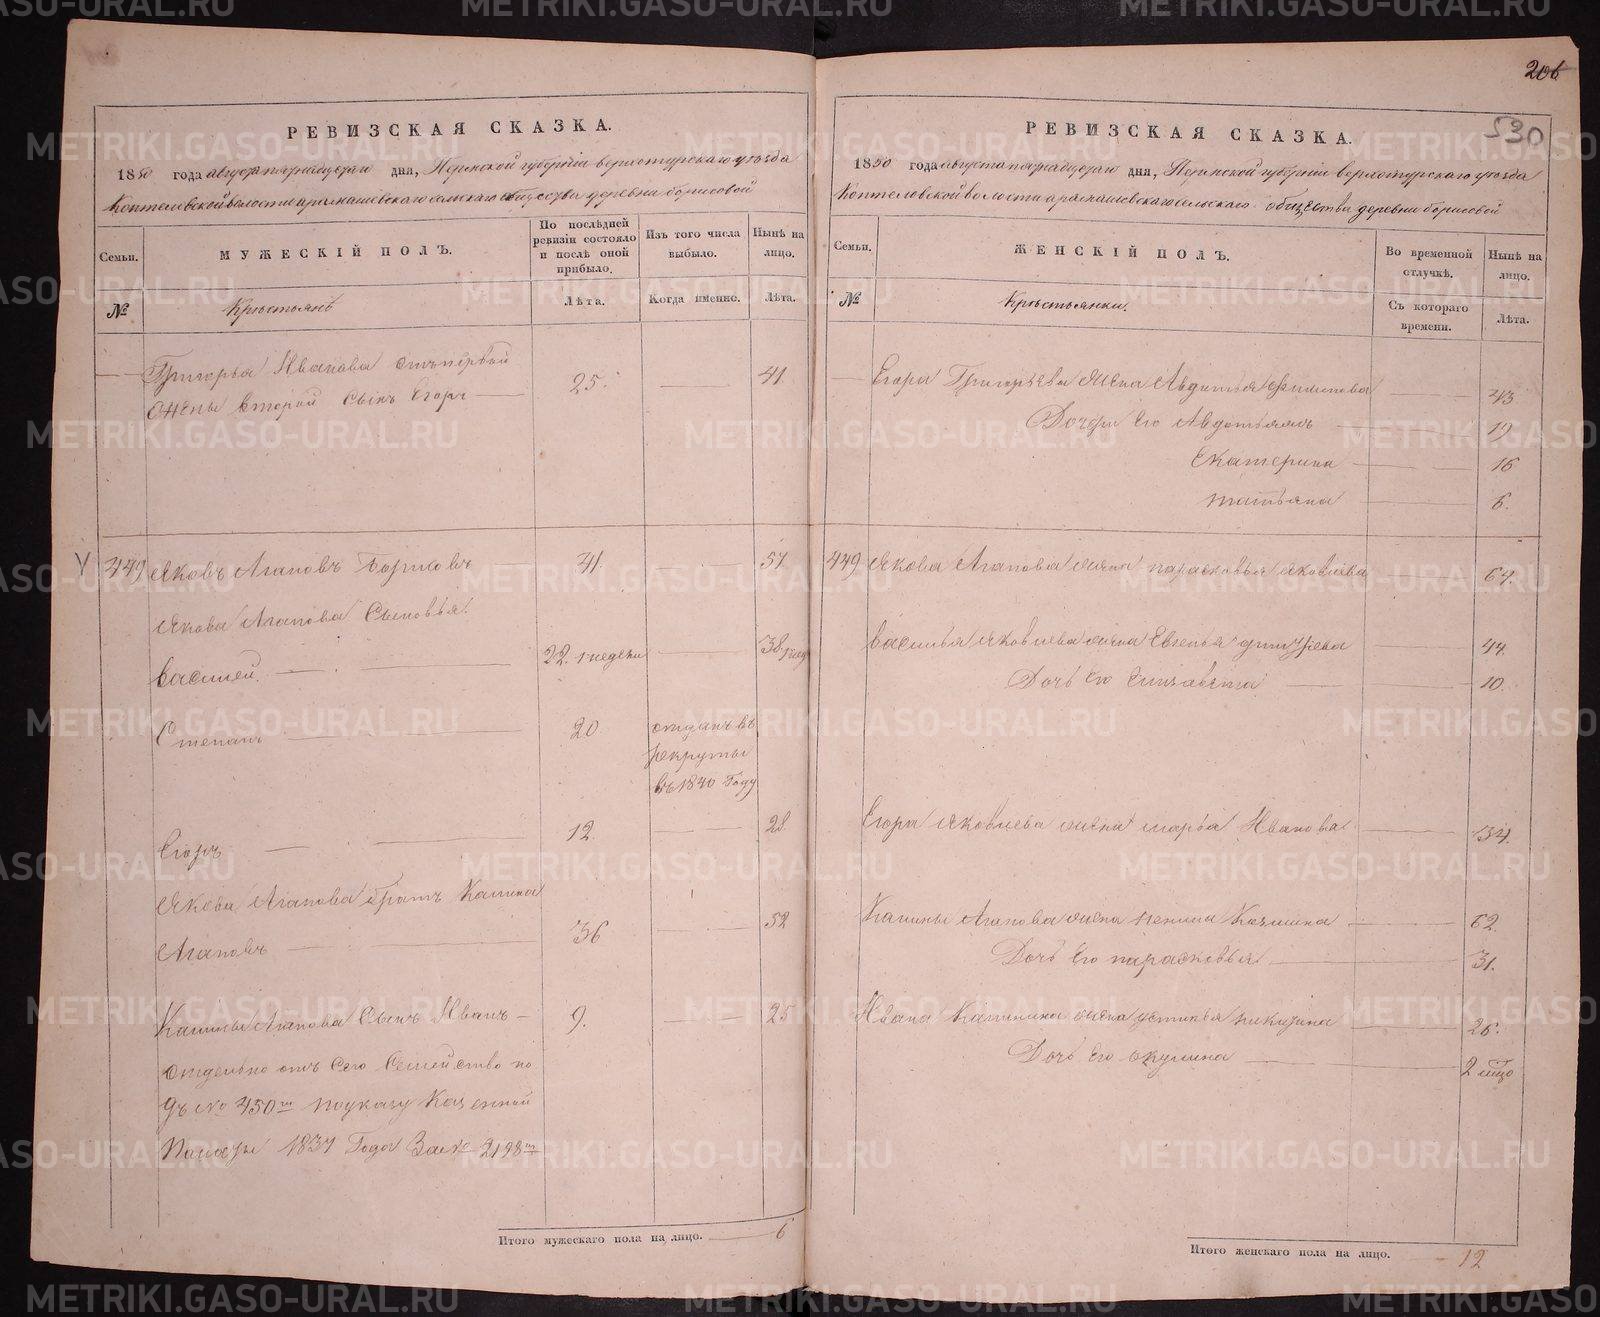 206
530
РЕВИЗСКАЯ СКАЗКА.
1850 года августа по тридцатаго дня, Пермской губерніи верхотурскаго уезда
Коптеловской волости арамашевскаго сельскаго общества деревни борисовой
Семьи.
МУЖЕСКІЙ ПОЛЪ.
По послѣдней ревизіи состояло и послѣ оной прибыло.
Изъ того числа выбыло.
Нынѣ на лицо.
№
Крестьянъ
Лѣта.
Когда именно.
Лѣта.
Григорья Иванова отъ первой 25. 41.
жены второй сынъ Егоръ
449 Яковъ Агаповъ Борисовъ 41. 57.
Якова Агапова Сыновья.
Василей. 22. 38.
Степанъ 20 отданъ въ
рекруты
въ 1840 Году
Егоръ 12. 28.
Якова Агапова братъ Калина
Агаповъ 36 52
Калины Агапова Сынъ Иванъ 9. 25
отдельно отъ Сего Семейство по
дъ № 450 по указу Казенной
Палаты 1837 Года За № 2198
Итого мужескаго пола на лицо. 6
РЕВИЗСКАЯ СКАЗКА.
1850 года августа по тридцатаго дня, Пермской губерніи верхотурскаго уезда
Коптеловской волости арамашевскаго сельскаго общества деревни борисовой
Семьи.
ЖЕНСКІЙ ПОЛЪ.
Во временной отлучкѣ.
Нынѣ на лицо.
№
Крестьянки.
Съ котораго времени.
Лѣта.
Егора Григорьева жена Авдотья Филипова 43
Дочери его Авдотья 19
Екатерина 16
татьяна 6.
449 Якова Агапова жена парасковья Яковлева 64.
Василья Яковлева жена Евгенья дмитрева 44.
Дочь его Елизавета 10.
Егора Яковлева жена марья Иванова 34.
Калины Агапова жена Козмина 62.
Дочь его парасковья 31.
Ивана Калинина жена устинья никитина 26.
Дочь его окулина 2
Итого женскаго пола на лицо. 12
METRIKI.GASO-URAL.RU